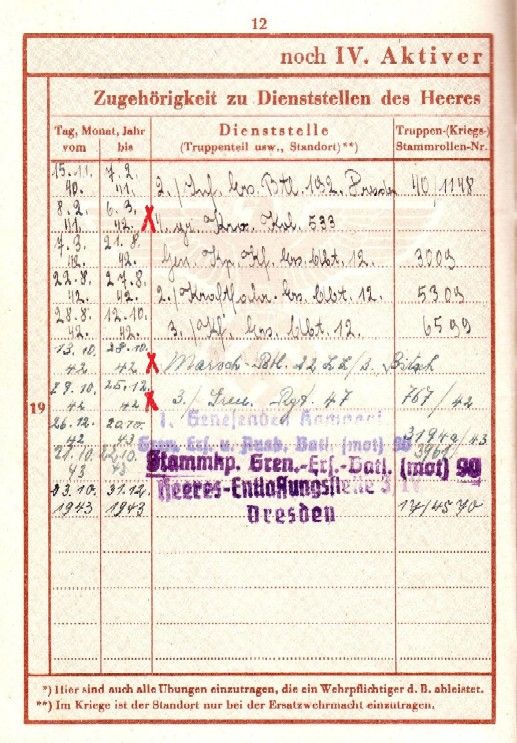 12
noch IV. Aktiver
Zugehörigkeit zu Dienststellen des Heeres
Tag, Monat, Jahr
vom bis
Dienststelle
(Truppenteil usw., Standort)**)
Truppen-(Kriegs-)
Stammrollen-Nr.
15.11. 7.2.
40. 41. 2./Inf. Ers. Btl. 192. Dresden 40/1148
8.2. 6.3.
41. 42. X gr. Krw. Kol. 533
7.3. 21.8.
42. 42. Gen. Kp. Kf. Ers. Abt. 12. 3009
22.8. 27.8.
42. 42. 2./Kraftfahr. Ers. Abt. 12. 5309
28.8. 12.10.
42. 42. 3./Kf. Ers. Abt. 12. 6599
13.10. 28.10.
42 42 X Marsch-Btl. 22 Bitsch
29.10. 25.12.
42 42 X 3./Gren. Rgt. 47 767/42
19
26.12. 20.10.
42 43 1. Genesenden Kompanie
Gren. Ers. u. Ausb. Batl. (mot) 90 3194a/43
21.10. 22.10. 3961
43 43 Stammkp. Gren.-Ers.-Batl. (mot) 90
03.10. 31.12. Heeres-Entlassungsstelle
1943 1943 Dresden 17/4570
*) Hier sind auch alle Übungen einzutragen, die ein Wehrpflichtiger d. B. ableistet.
**) Im Kriege ist der Standort nur bei der Ersatzwehrmacht einzutragen.